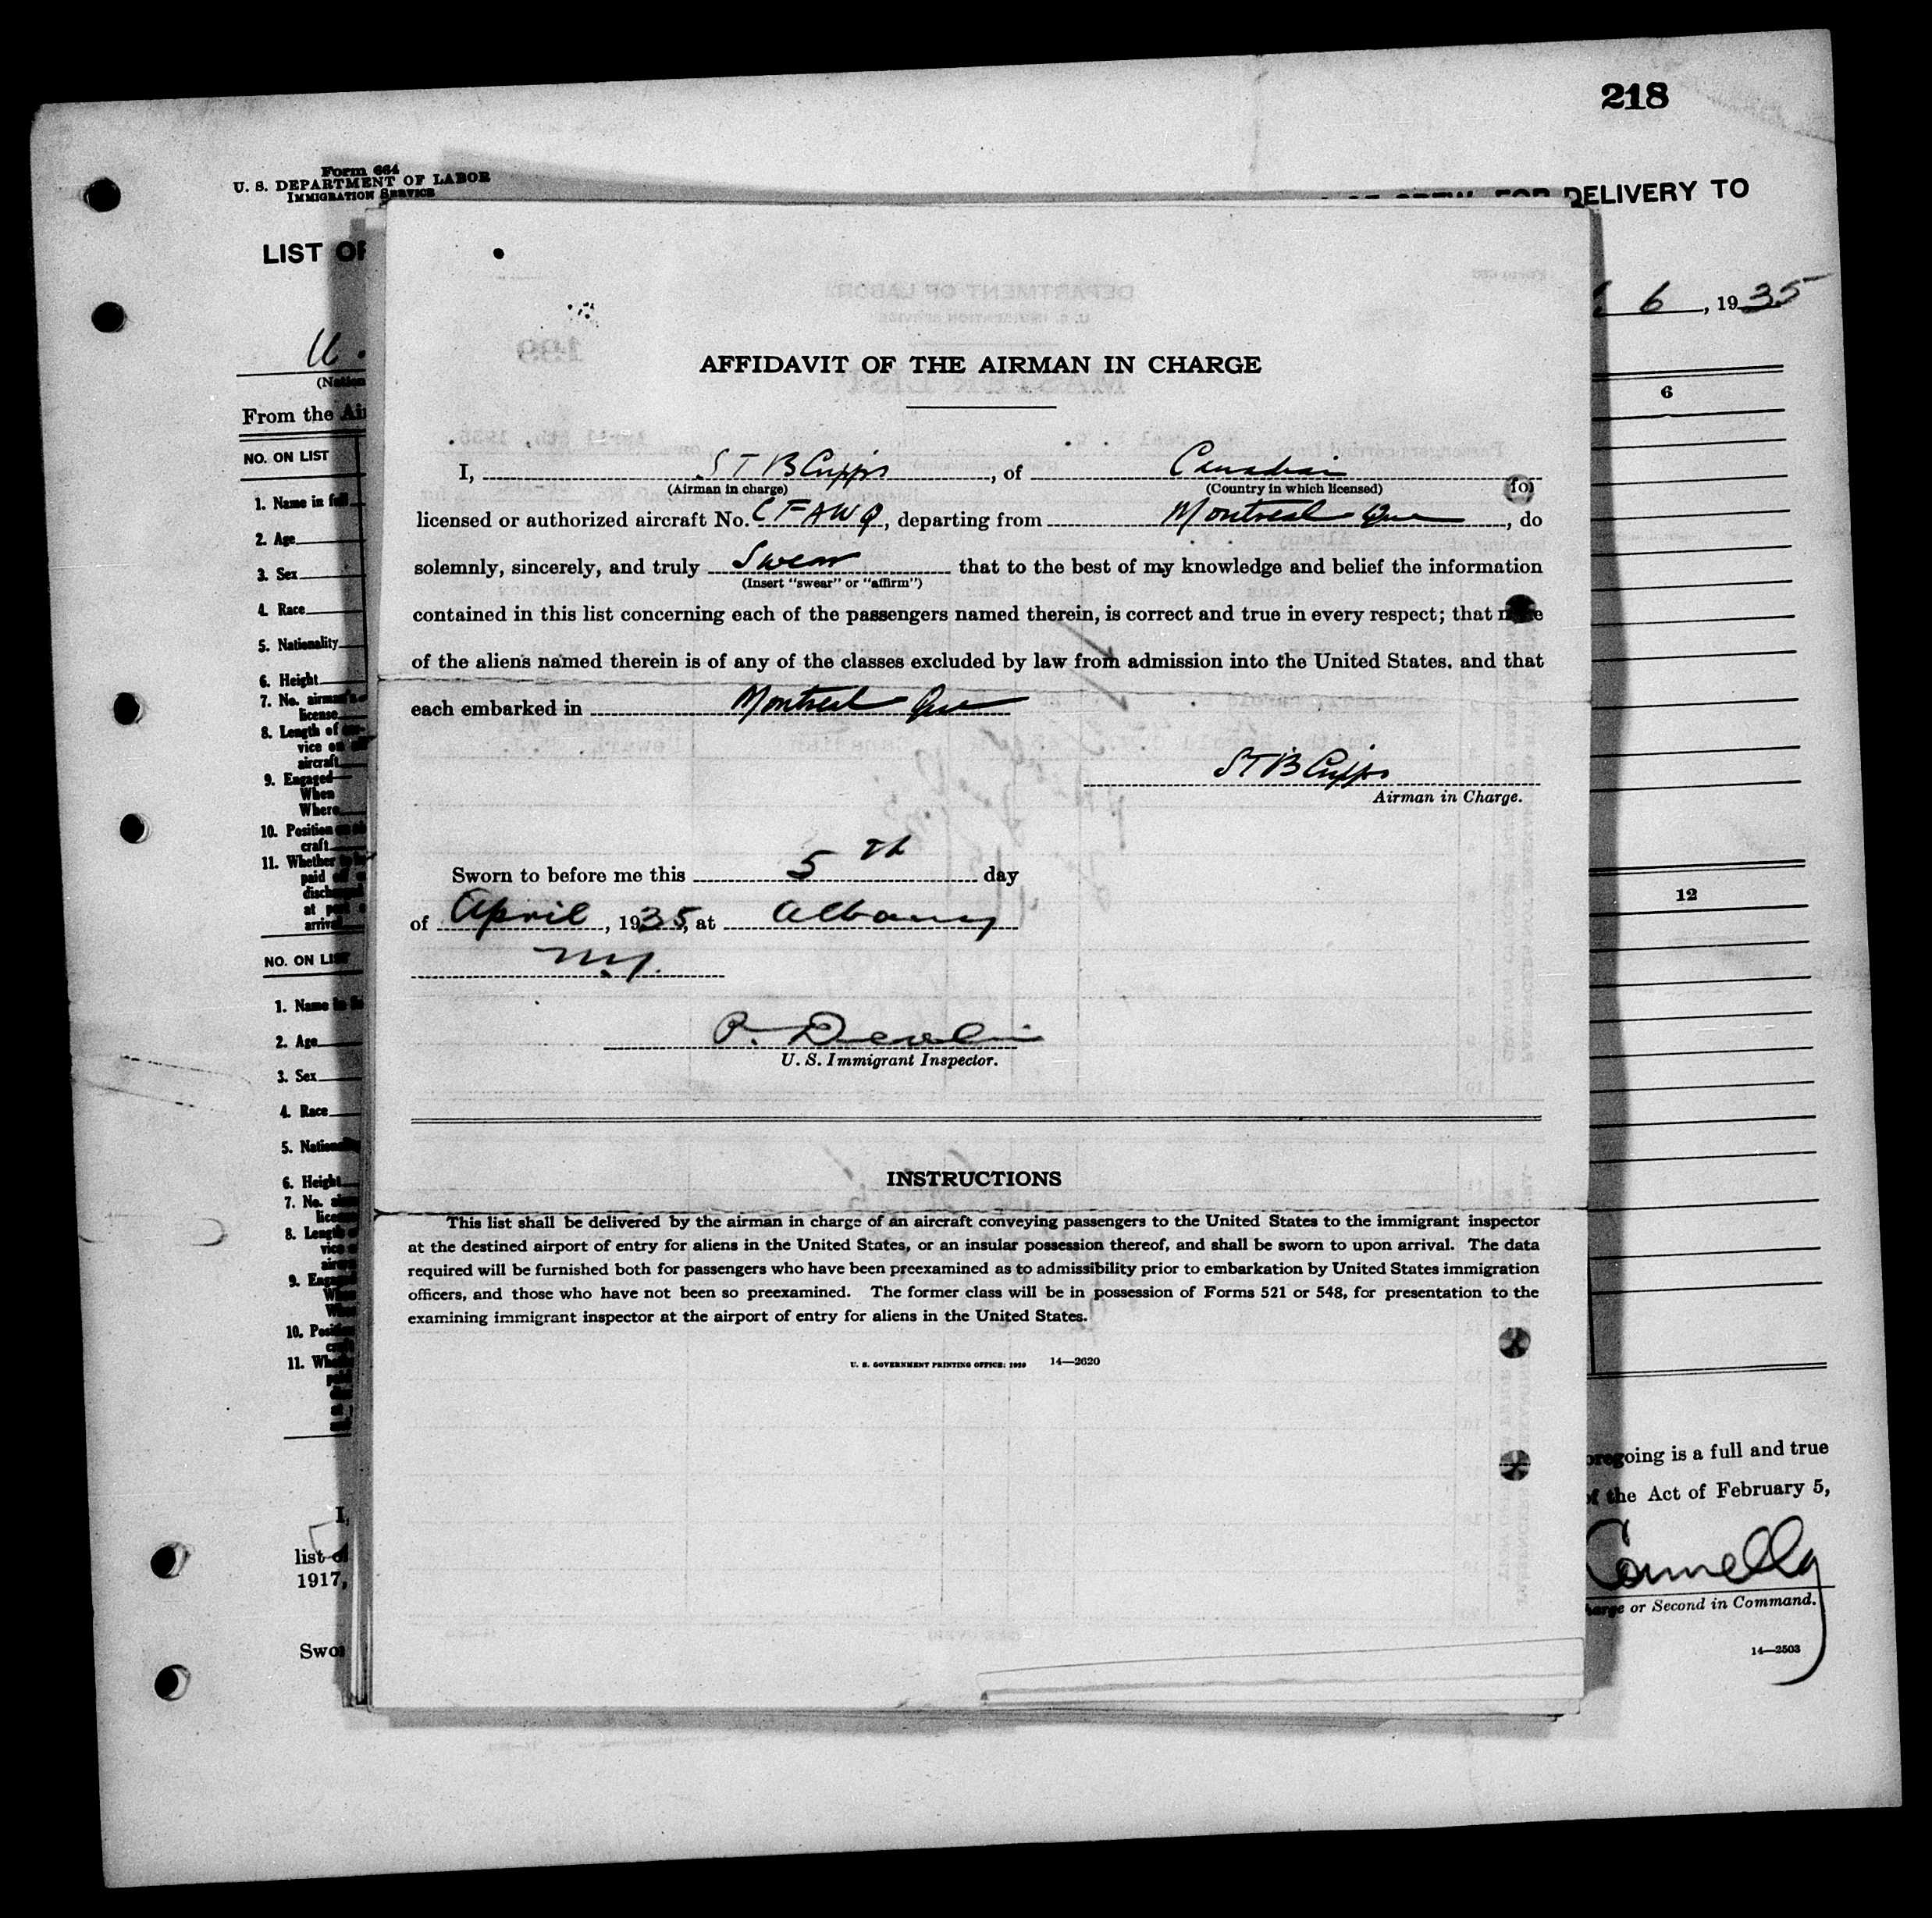 218
Form 664
U. S. DEPARTMENT OF LABOR
IMMIGRATION SERVICE
DELIVERY TO
LIST OF
6, 1935
U.
From the Air
NO. ON LIST
1. Name in full
2. Age
3. Sex
4. Race
5. Nationality
6. Height
7. No. airman's
license
8. Length of
vice on
aircraft
9. Engaged
When
Where
10. Position
craft
11. Whether
paid
at
arrival
6
12
NO. ON LIST
1. Name
2. Age
3. Sex
4. Race
5.
6. Height
7. No.
8.
9.
10.
11.
I,
list
1917,
Swor
AFFIDAVIT OF THE AIRMAN IN CHARGE
I, S T B Cripps, of Canadian
(Airman in charge) (Country in which licensed) for
licensed or authorized aircraft No. C F A W Q, departing from Montreal Que, do
solemnly, sincerely, and truly Swear that to the best of my knowledge and belief the information
(Insert "swear" or "affirm")
contained in this list concerning each of the passengers named therein, is correct and true in every respect; that none
of the aliens named therein is of any of the classes excluded by law from admission into the United States. and that
each embarked in Montreal Que
S T B Cripps
Airman in Charge.
Sworn to before me this 5th day
of April, 1935, at Albany
N.Y.
P. Devlin
U. S. Immigrant Inspector.
INSTRUCTIONS
This list shall be delivered by the airman in charge of an aircraft conveying passengers to the United States to the immigrant inspector
at the destined airport of entry for aliens in the United States, or an insular possession thereof, and shall be sworn to upon arrival. The data
required will be furnished both for passengers who have been preexamined as to admissibility prior to embarkation by United States immigration
officers, and those who have not been so preexamined. The former class will be in possession of Forms 521 or 548, for presentation to the
examining immigrant inspector at the airport of entry for aliens in the United States.
U. S. GOVERNMENT PRINTING OFFICE: 14—2620
going is a full and true
of the Act of February 5,
Connelly
or Second in Command.
14—2503